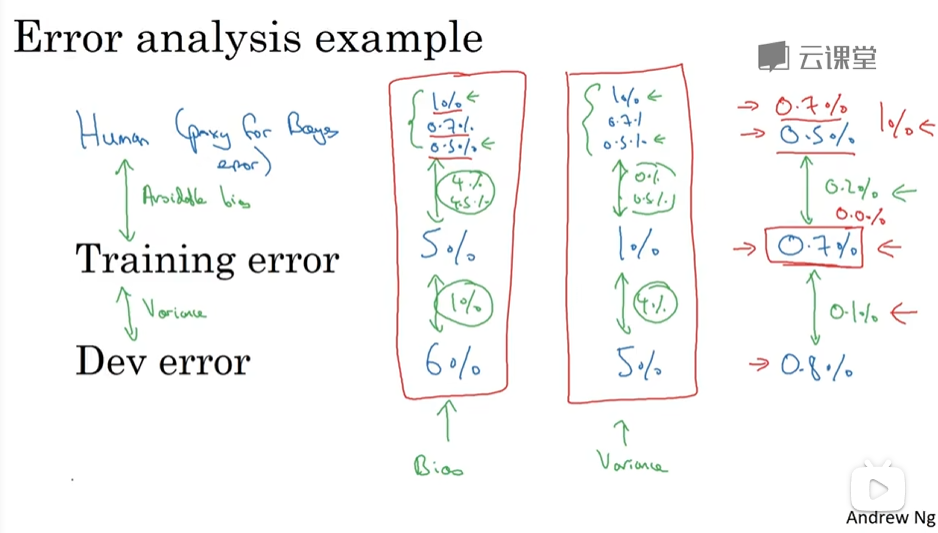 Error analysis example
云课堂
Human (proxy for Bayes error)
Avoidable bias
Training error
Variance
Dev error
1%
0.7%
0.5%
4%
4.5%
5%
1%
6%
Bias
1%
0.7%
0.5%
0%
0.5%
1%
4%
5%
Variance
0.7%
0.5%
1%
0.2%
0.0%
0.7%
0.1%
0.8%
Andrew Ng